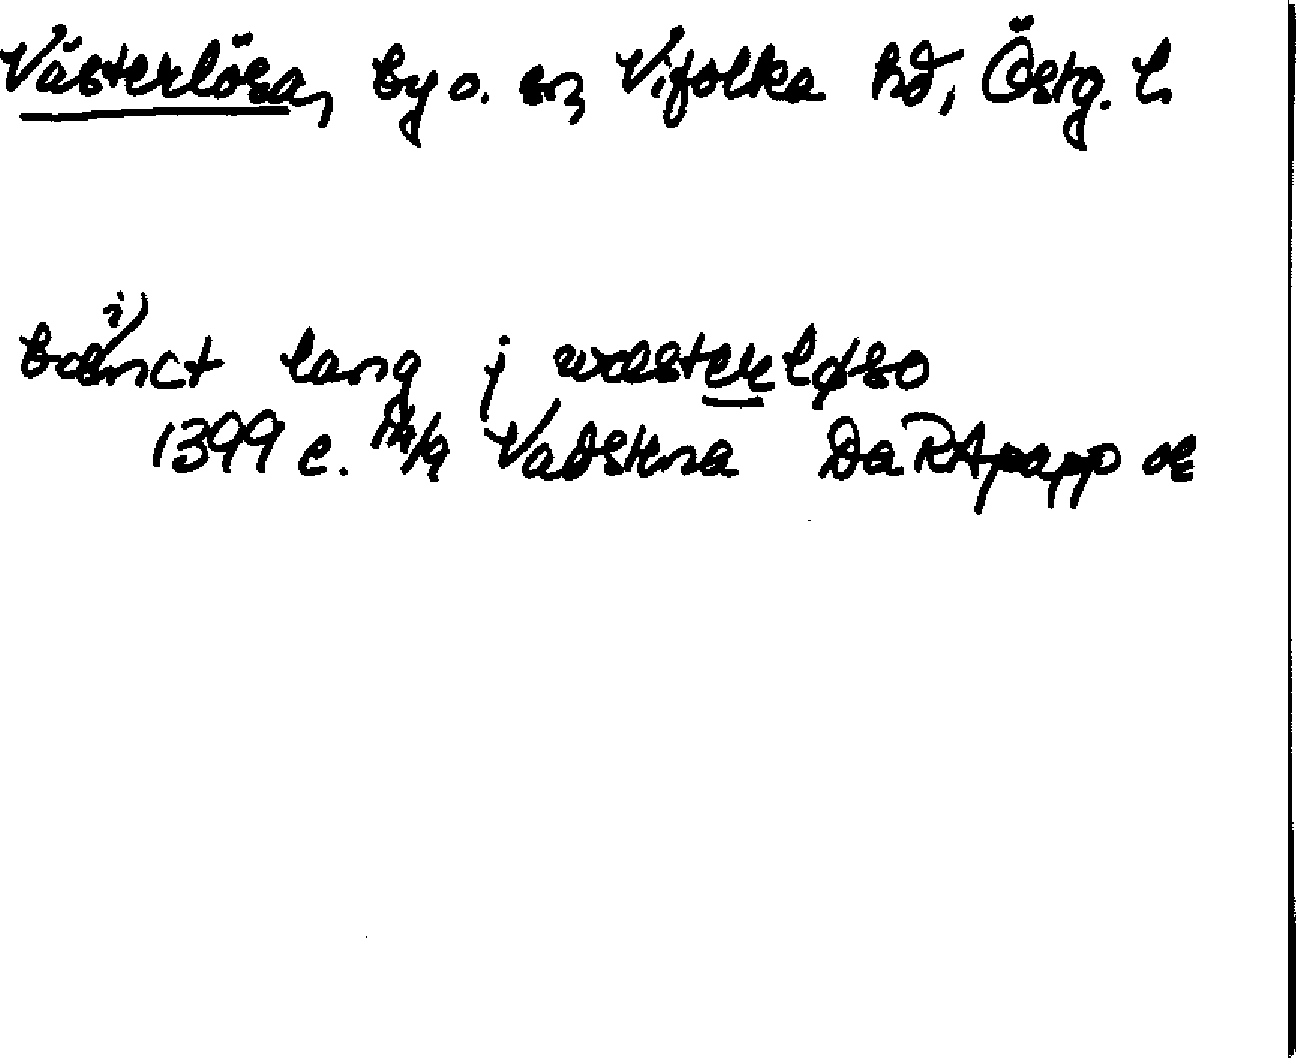 Västerlösa, by o. sn, Vifolka hd, Östg. l.
bænct lang j wæsterløso
1399 e. 14/9 Vadstena Da RApapp or